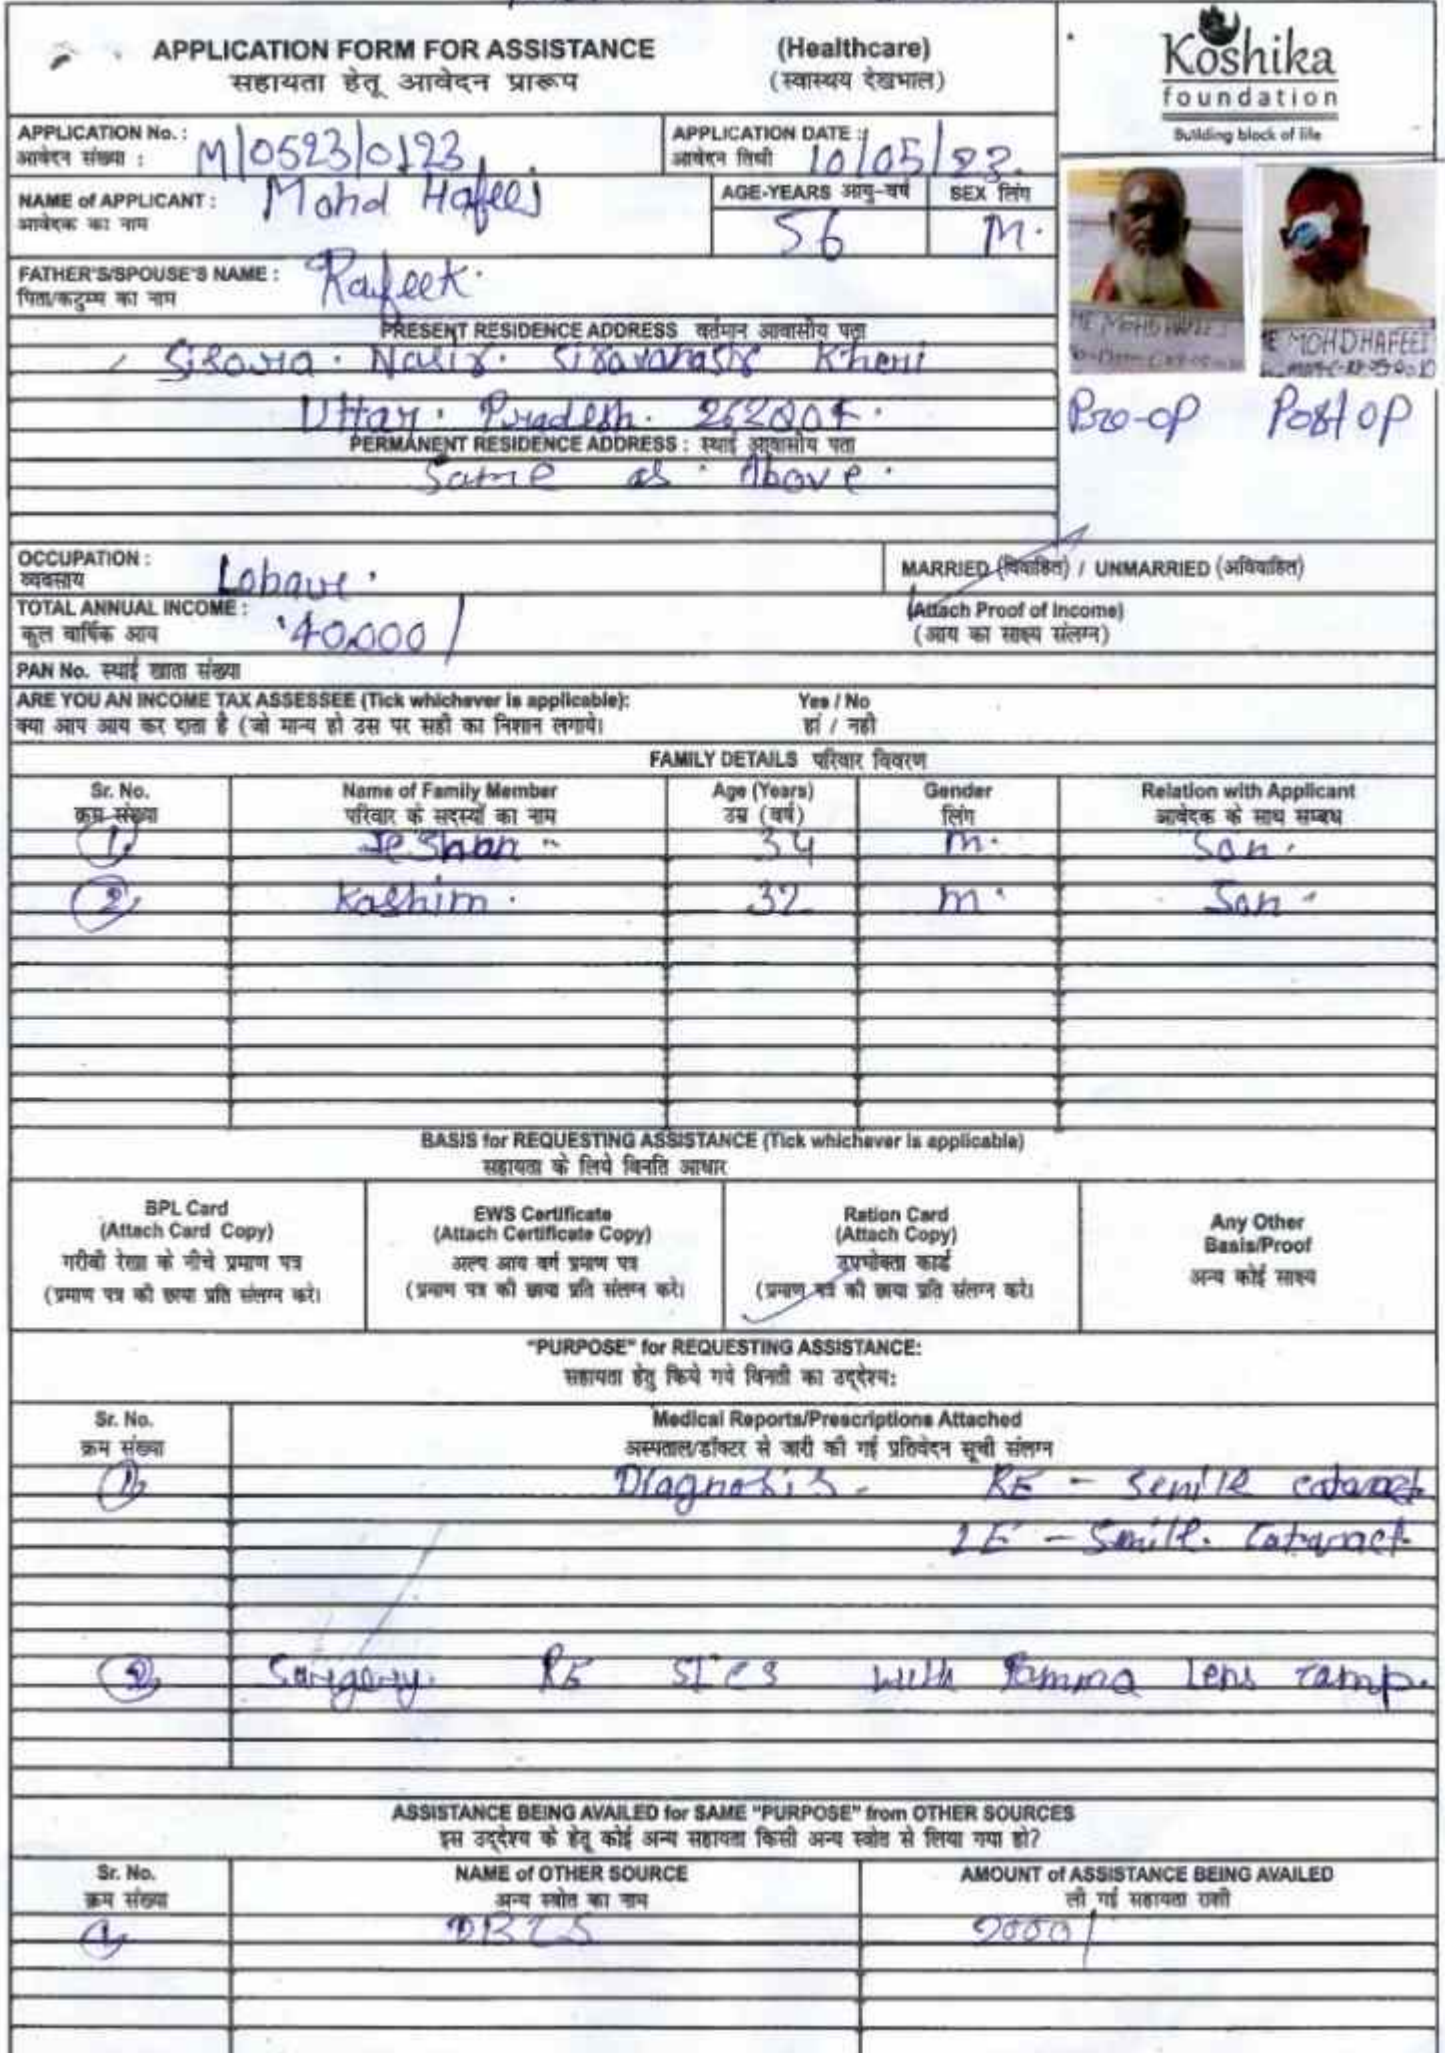 APPLICATION FORM FOR ASSISTANCE (Healthcare)
सहायता हेतू आवेदन प्रारूप (स्वास्थय देखभाल)
Koshika
foundation
Building block of life
APPLICATION No. : M/0523/0123
आवेदन संख्या :
APPLICATION DATE : 10/05/23.
आवेदन तिथी
NAME of APPLICANT : Mohd Hafeej
आवेदक का नाम
AGE-YEARS आयु-वर्ष 56
SEX लिंग M.
FATHER'S/SPOUSE'S NAME : Rafeek.
पिता/कटुम्ब का नाम
PRESENT RESIDENCE ADDRESS वर्तमान आवासीय पता
Kheri
Uttar. Pradesh.
PERMANENT RESIDENCE ADDRESS : स्थाई आवासीय पता
Same as. Above.
RE MOHD HAFEEJ
RE MOHD HAFEEJ
Pre-op Post op
OCCUPATION : Labour.
व्यवसाय
MARRIED (विवाहित) / UNMARRIED (अविवाहित)
TOTAL ANNUAL INCOME : 40,000/
कुल वार्षिक आय
(Attach Proof of Income)
(आय का साक्ष्य संलग्न)
PAN No. स्थाई खाता संख्या
ARE YOU AN INCOME TAX ASSESSEE (Tick whichever is applicable): Yes / No
क्या आप आय कर दाता है (जो मान्य हो उस पर सही का निशान लगाये। हां / नही
FAMILY DETAILS परिवार विवरण
Sr. No. Name of Family Member Age (Years) Gender Relation with Applicant
क्रम संख्या परिवार के सदस्यों का नाम उम्र (वर्ष) लिंग आवेदक के साथ सम्बध
1. Jeshan 34 m. Son.
2. Kashim. 32 m. Son.
BASIS for REQUESTING ASSISTANCE (Tick whichever is applicable)
सहायता के लिये विनति आधार
BPL Card
(Attach Card Copy)
गरीबी रेखा के नीचे प्रमाण पत्र
(प्रमाण पत्र की छाया प्रति संलग्न करे।
EWS Certificate
(Attach Certificate Copy)
अल्प आय वर्ग प्रमाण पत्र
(प्रमाण पत्र की छाया प्रति संलग्न करे।
Ration Card
(Attach Copy)
उपभोक्ता कार्ड
(प्रमाण पत्र की छाया प्रति संलग्न करे।
Any Other
Basis/Proof
अन्य कोई साक्ष्य
"PURPOSE" for REQUESTING ASSISTANCE:
सहायता हेतु किये गये विनती का उद्देश्य:
Sr. No. Medical Reports/Prescriptions Attached
क्रम संख्या अस्पताल/डॉक्टर से जारी की गई प्रतिवेदन सूची संलग्न
1. Diagnosis - RE - Senile cataract
LE - Senile. Cataract
2. Surgery. RE SICS with Lens
ASSISTANCE BEING AVAILED for SAME "PURPOSE" from OTHER SOURCES
इस उद्देश्य के हेतू कोई अन्य सहायता किसी अन्य स्त्रोत से लिया गया हो?
Sr. No. NAME of OTHER SOURCE AMOUNT of ASSISTANCE BEING AVAILED
क्रम संख्या अन्य स्त्रोत का नाम ली गई सहायता राशी
1. 2000/